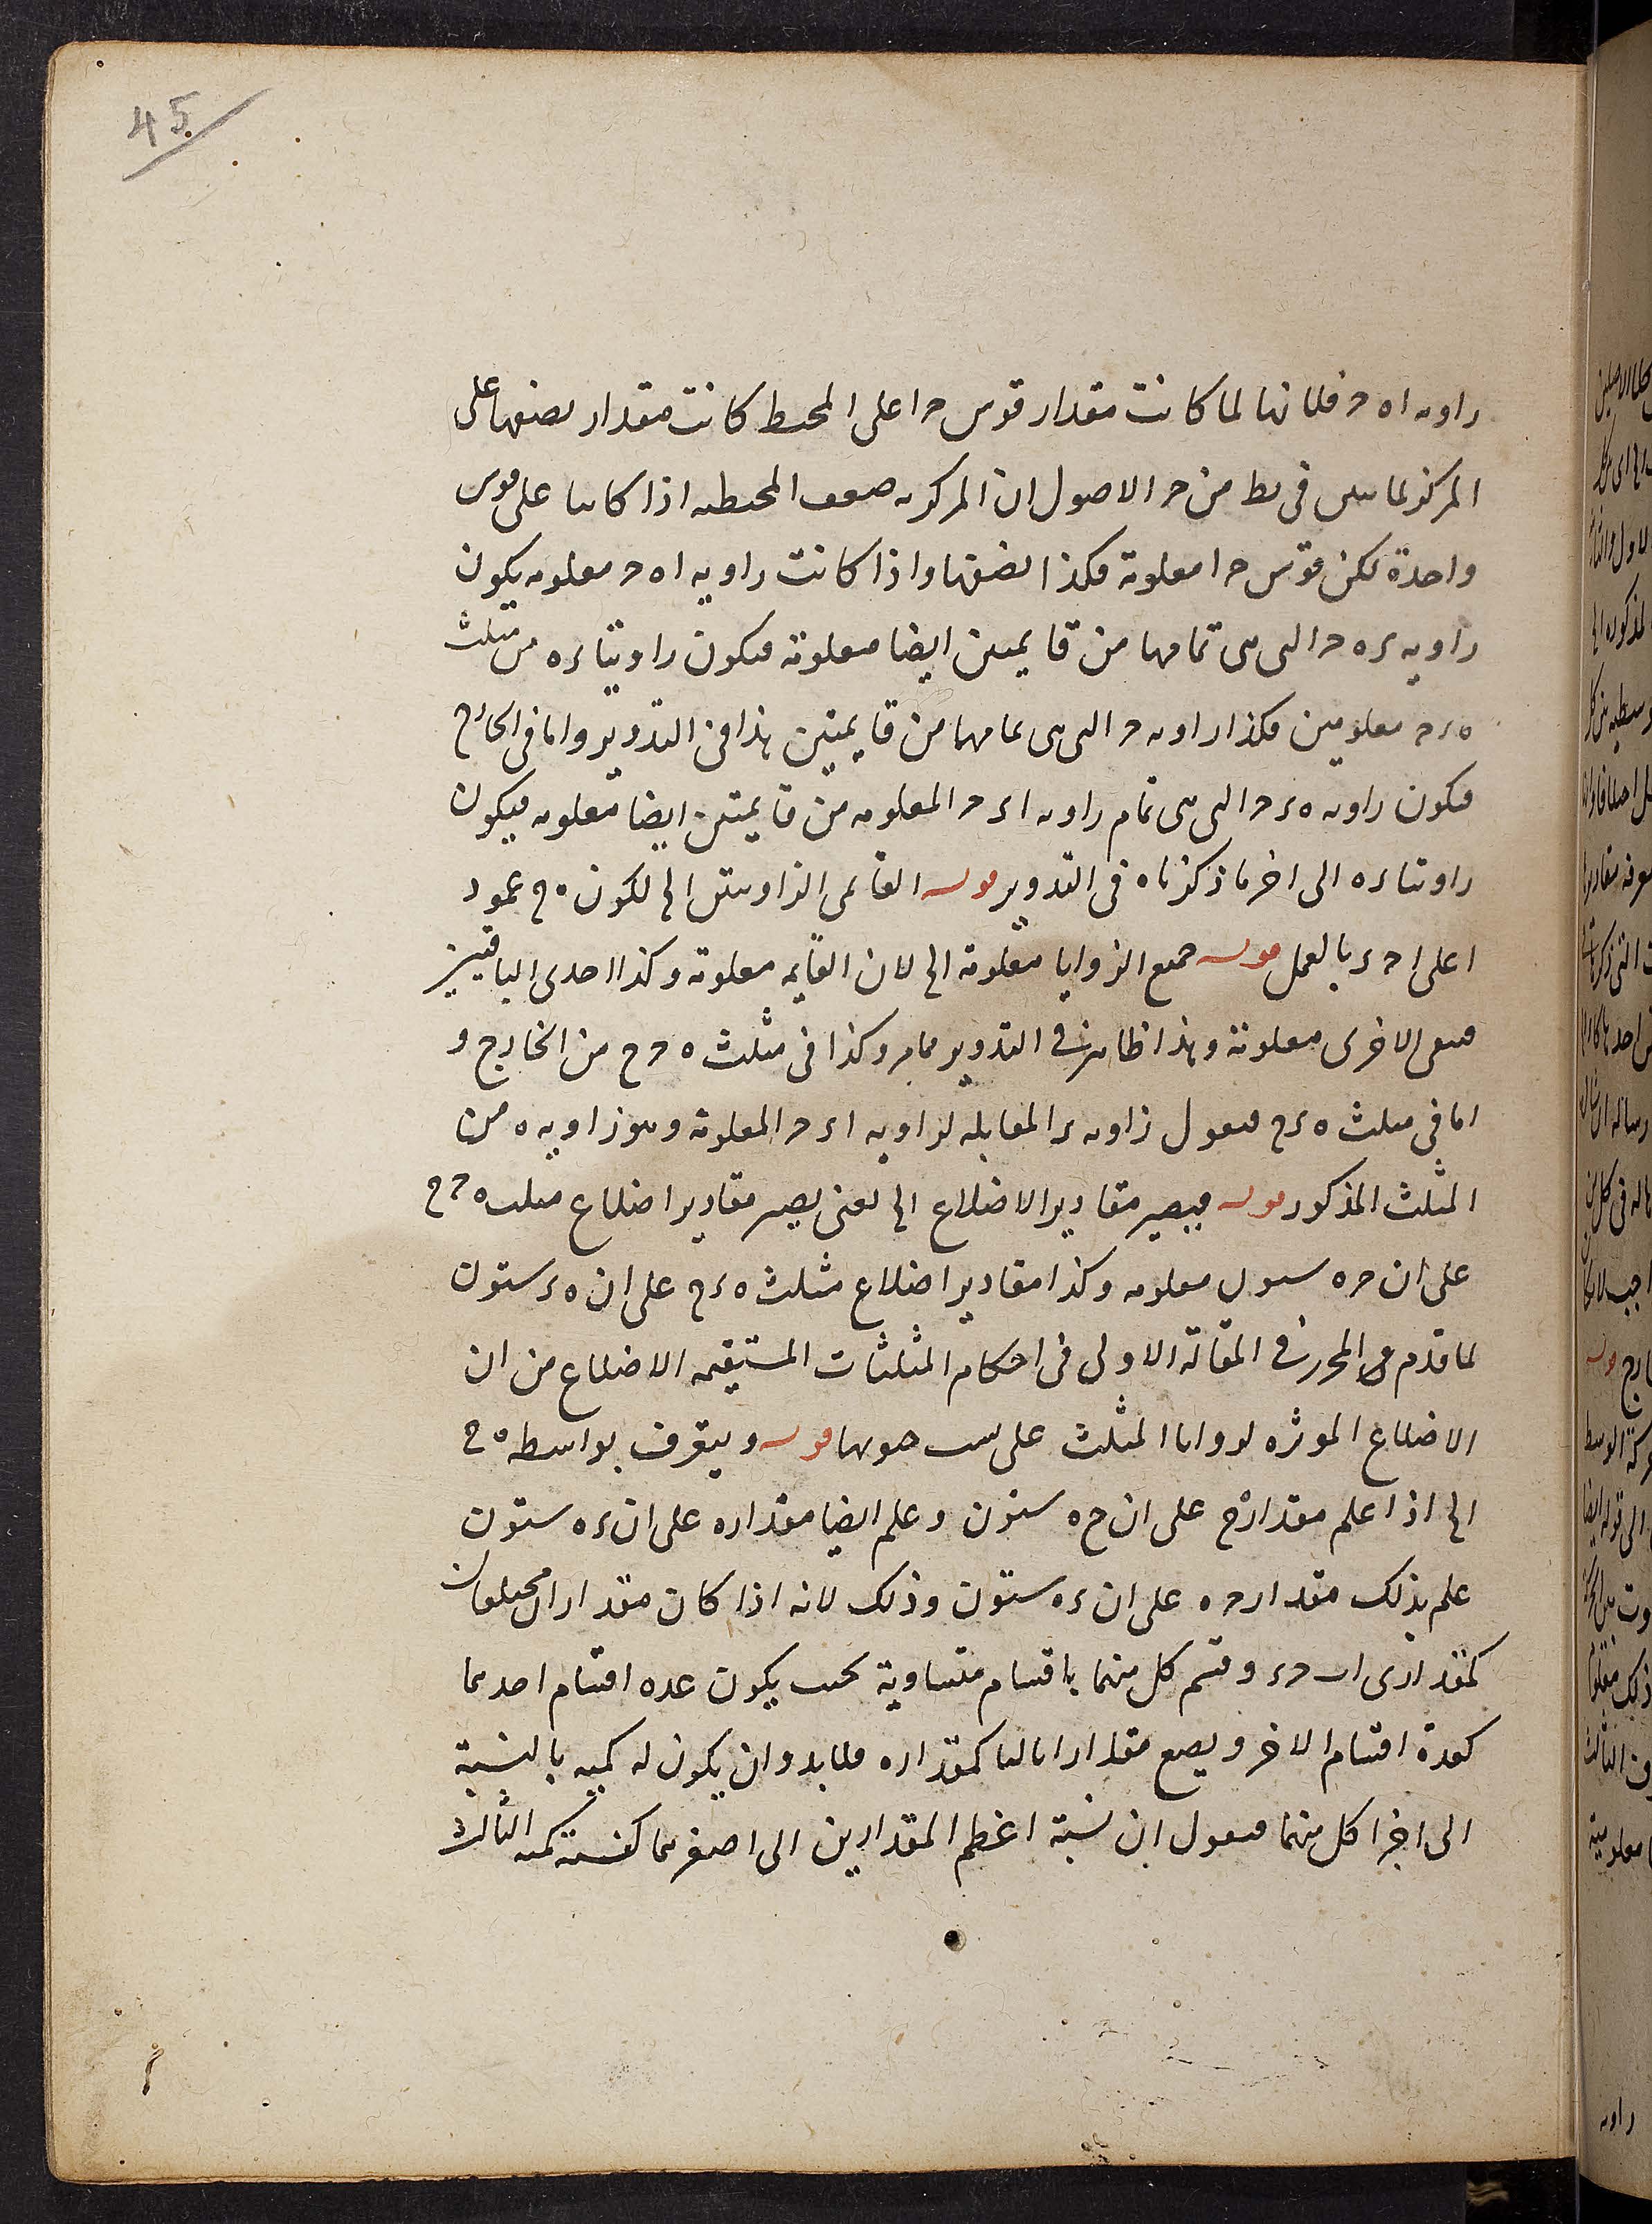 45
زاويه اه ح فلانها لما كانت مقدار قوس ح ا على المحيط كانت مقدار نصفها على
المركز لما تبين فى يط من ح الاصول ان المركزيه ضعف المحيطيه اذا كانتا على قوس
واحدة لكن قوس ح ا معلومة فكذا نصفها واذا كانت زاويه اه ح معلومه يكون
زاويه ءه ح التى هى تمامها من قايمتين ايضا معلومة فيكون زاويتا ءه من مثلث
ه ء ح معلومين فكذا زاويه ح التى هى تمامهما من قايمتين هذا فى التدوير واما فى الخارج
فيكون زاويه ه ء ح التى هى تمام زاويه ا ء ح المعلومه من قايمتين ايضا معلومه فيكون
زاويتا ءه الى اخر ما ذكرناه فى التدوير قوله القايمى الزاويتين الخ لكون ه ح عمود
ا على ا ح ء بالعمل قوله جميع الزوايا معلومة الخ لان القايمه معلومة وكذا احدى الباقيتين
فبقى الاخرى معلومة وهذا ظاهر فى التدوير مما مر وكذا فى مثلث ه ح ح من الخارج و
اما فى مثلث ه ء ح فنقول زاويه ء المقابله لزاويه ا ء ح المعلومة وهو زاويه ه من
المثلث المذكور قوله فيصير مقادير الاضلاع الخ يعنى يصير مقادير اضلاع مثلث ه ح ح
على ان ح ه ستون معلومه وكذا مقادير اضلاع مثلث ه ء ح على ان ه ء ستون
لما قدم المحرر فى المقالة الاولى فى احكام المثلثات المستقيمه الاضلاع من ان
الاضلاع الموتره لزوايا المثلث على نسب جيوبها قوله ويتعرف بواسطه ه ح
الخ اذا علم مقدار ه ح على ان ح ه ستون وعلم ايضا مقداره على ان ء ه ستون
علم بذلك مقدار ح ه على ان ء ه ستون وذلك لانه اذا كان مقداران مختلفان
كمقدارى اب ح ء وقسم كل منهما باقسام متساوية بحيث يكون عده اقسام احدهما
كعدة اقسام الاخر ويضع مقدارا ثالثا كمقداره فلابد وان يكون له كميه بالنسبة
الى اجزا كل منهما فنقول ان نسبة اعظم المقدارين الى اصغرهما كنسبة كميه الثالث